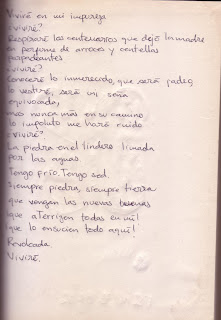 Viviré en mi impureza
¿viviré?
Respiraré los centenarios que dejó la madre
en perfume de arroces y centellas
¿viviré?
Conoceré lo inmerecido, que será
lo vestiré, será mi saña
equivocada,
mas nunca más en su camino
lo impoluto me hará ruido
¿viviré?
La piedra en el lindero limada
por las aguas.
Tengo frío. Tengo sed.
Siempre piedra, siempre tierra
que vengan las nuevas
¡que aterricen todas en mí!
¡que lo ensucien todo aquí!
Revolcada
Viviré.